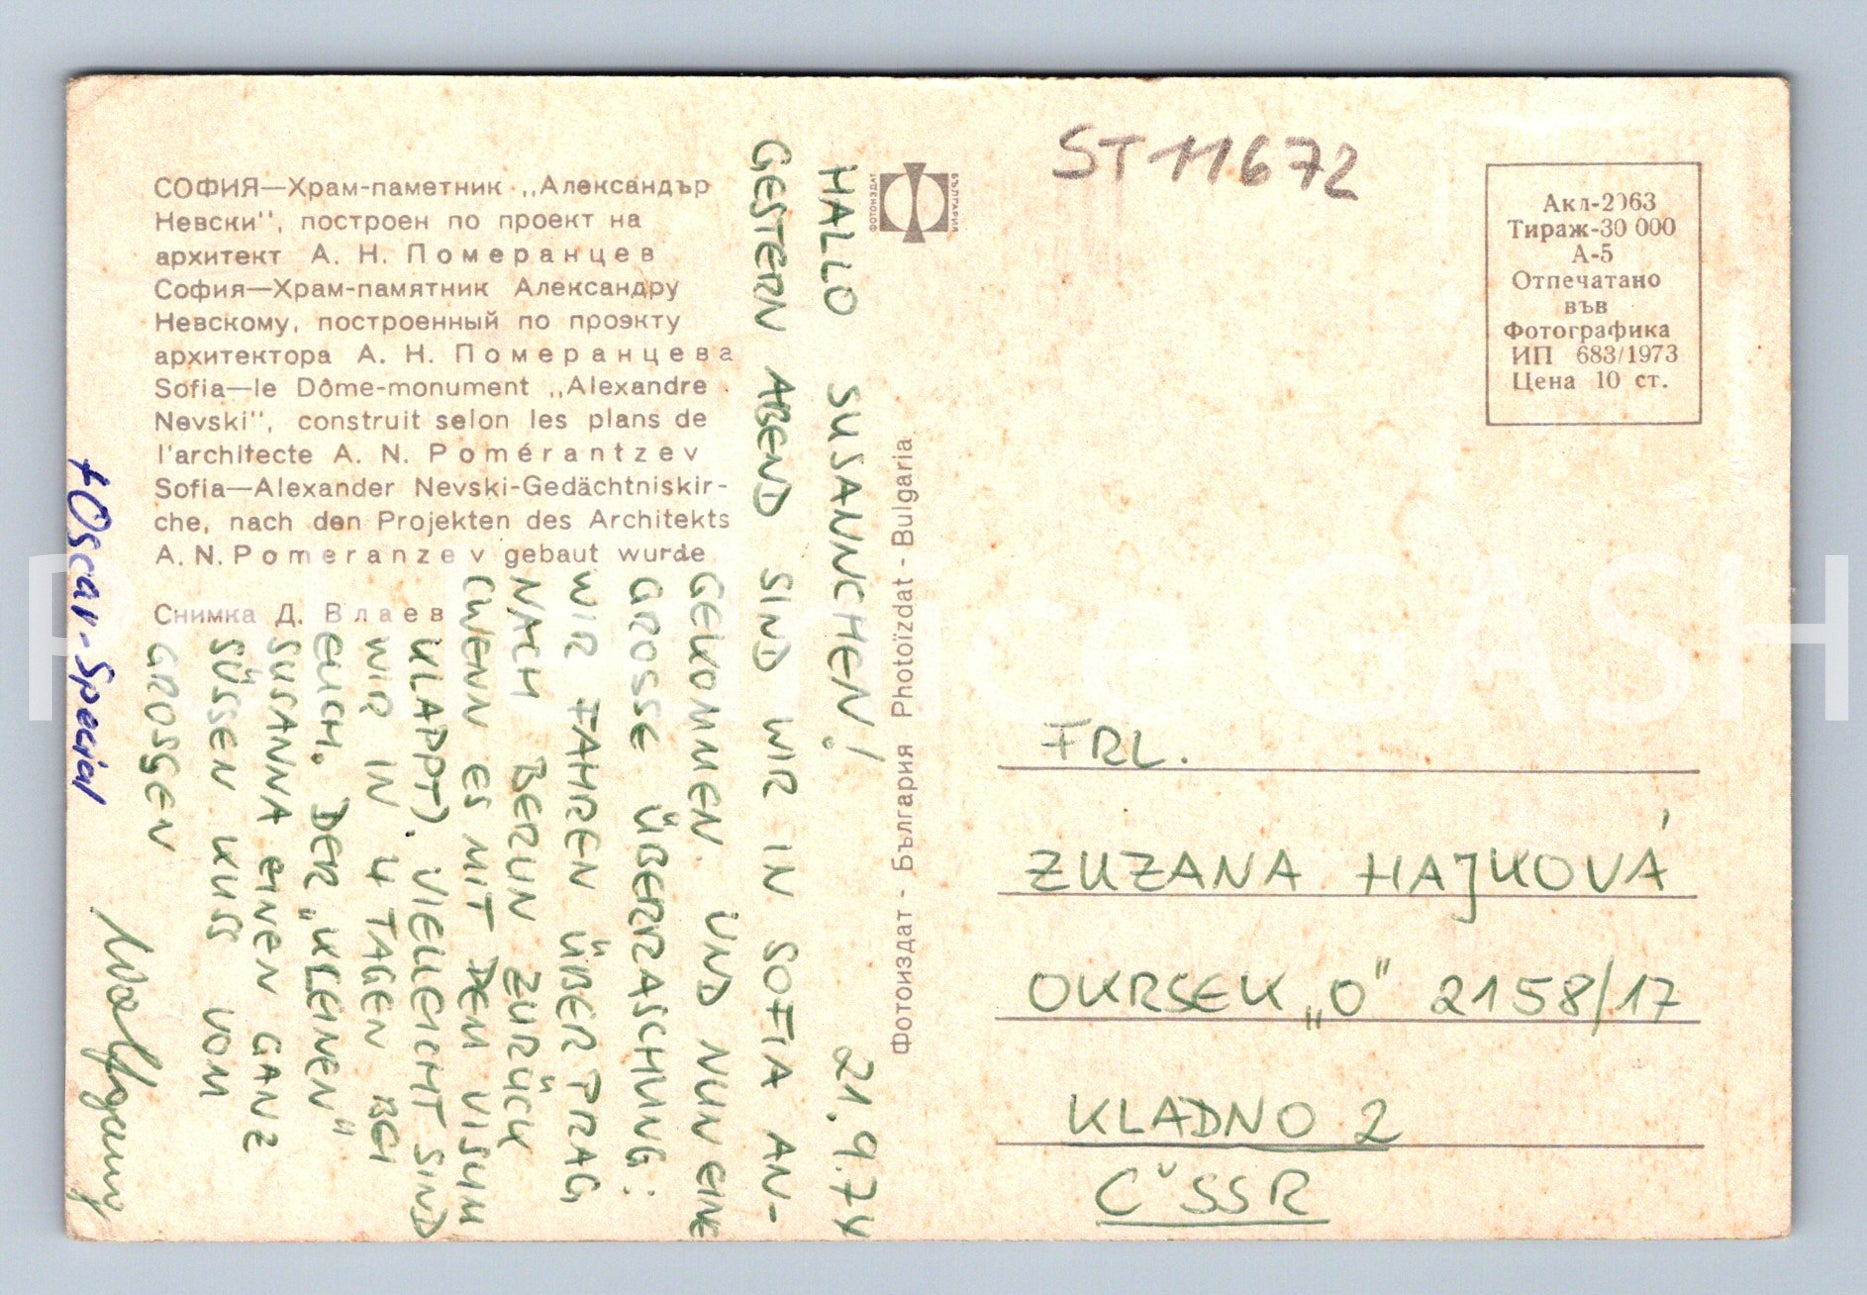 СОФИЯ—Храм-паметник „Александър
Невски", построен по проект на
архитект А. Н. Померанцев
София—Храм-памятник Александру
Невскому, построенный по проэкту
архитектора А. Н. Померанцева
Sofia—le Dôme-monument „Alexandre
Nevski", construit selon les plans de
l'architecte A. N. Pomérantzev
Sofia—Alexander Nevski-Gedächtniskir-
che, nach den Projekten des Architekts
A. N. Pomeranzev gebaut wurde
Снимка Д. Влаев
21.9.74
HALLO SUSANNCHEN!
GESTERN ABEND SIND WIR IN SOFIA AN-
GEKOMMEN. UND NUN EINE
GROSSE ÜBERRASCHUNG:
WIR FAHREN ÜBER PRAG
NACH BERLIN ZURÜCK
(WENN ES MIT DEM VISUM
KLAPPT). VIELLEICHT SIND
WIR IN 4 TAGEN BEI
EUCH. DER „KLEINEN"
SUSANNA EINEN GANZ
SÜSSEN KUSS VOM
GROSSEN
Wolfgang
+ Oscar-Special
ФОТОИЗДАТ
БЪЛГАРИЯ
Фотоиздат - България Photoïzdat - Bulgaria
ST 11672
Акл-2063
Тираж-30 000
А-5
Отпечатано
във
Фотографика
ИП 683/1973
Цена 10 ст.
FRL.
ZUZANA HAJKOVÁ
OKRSEK „O" 2158/17
KLADNO 2
ČSSR